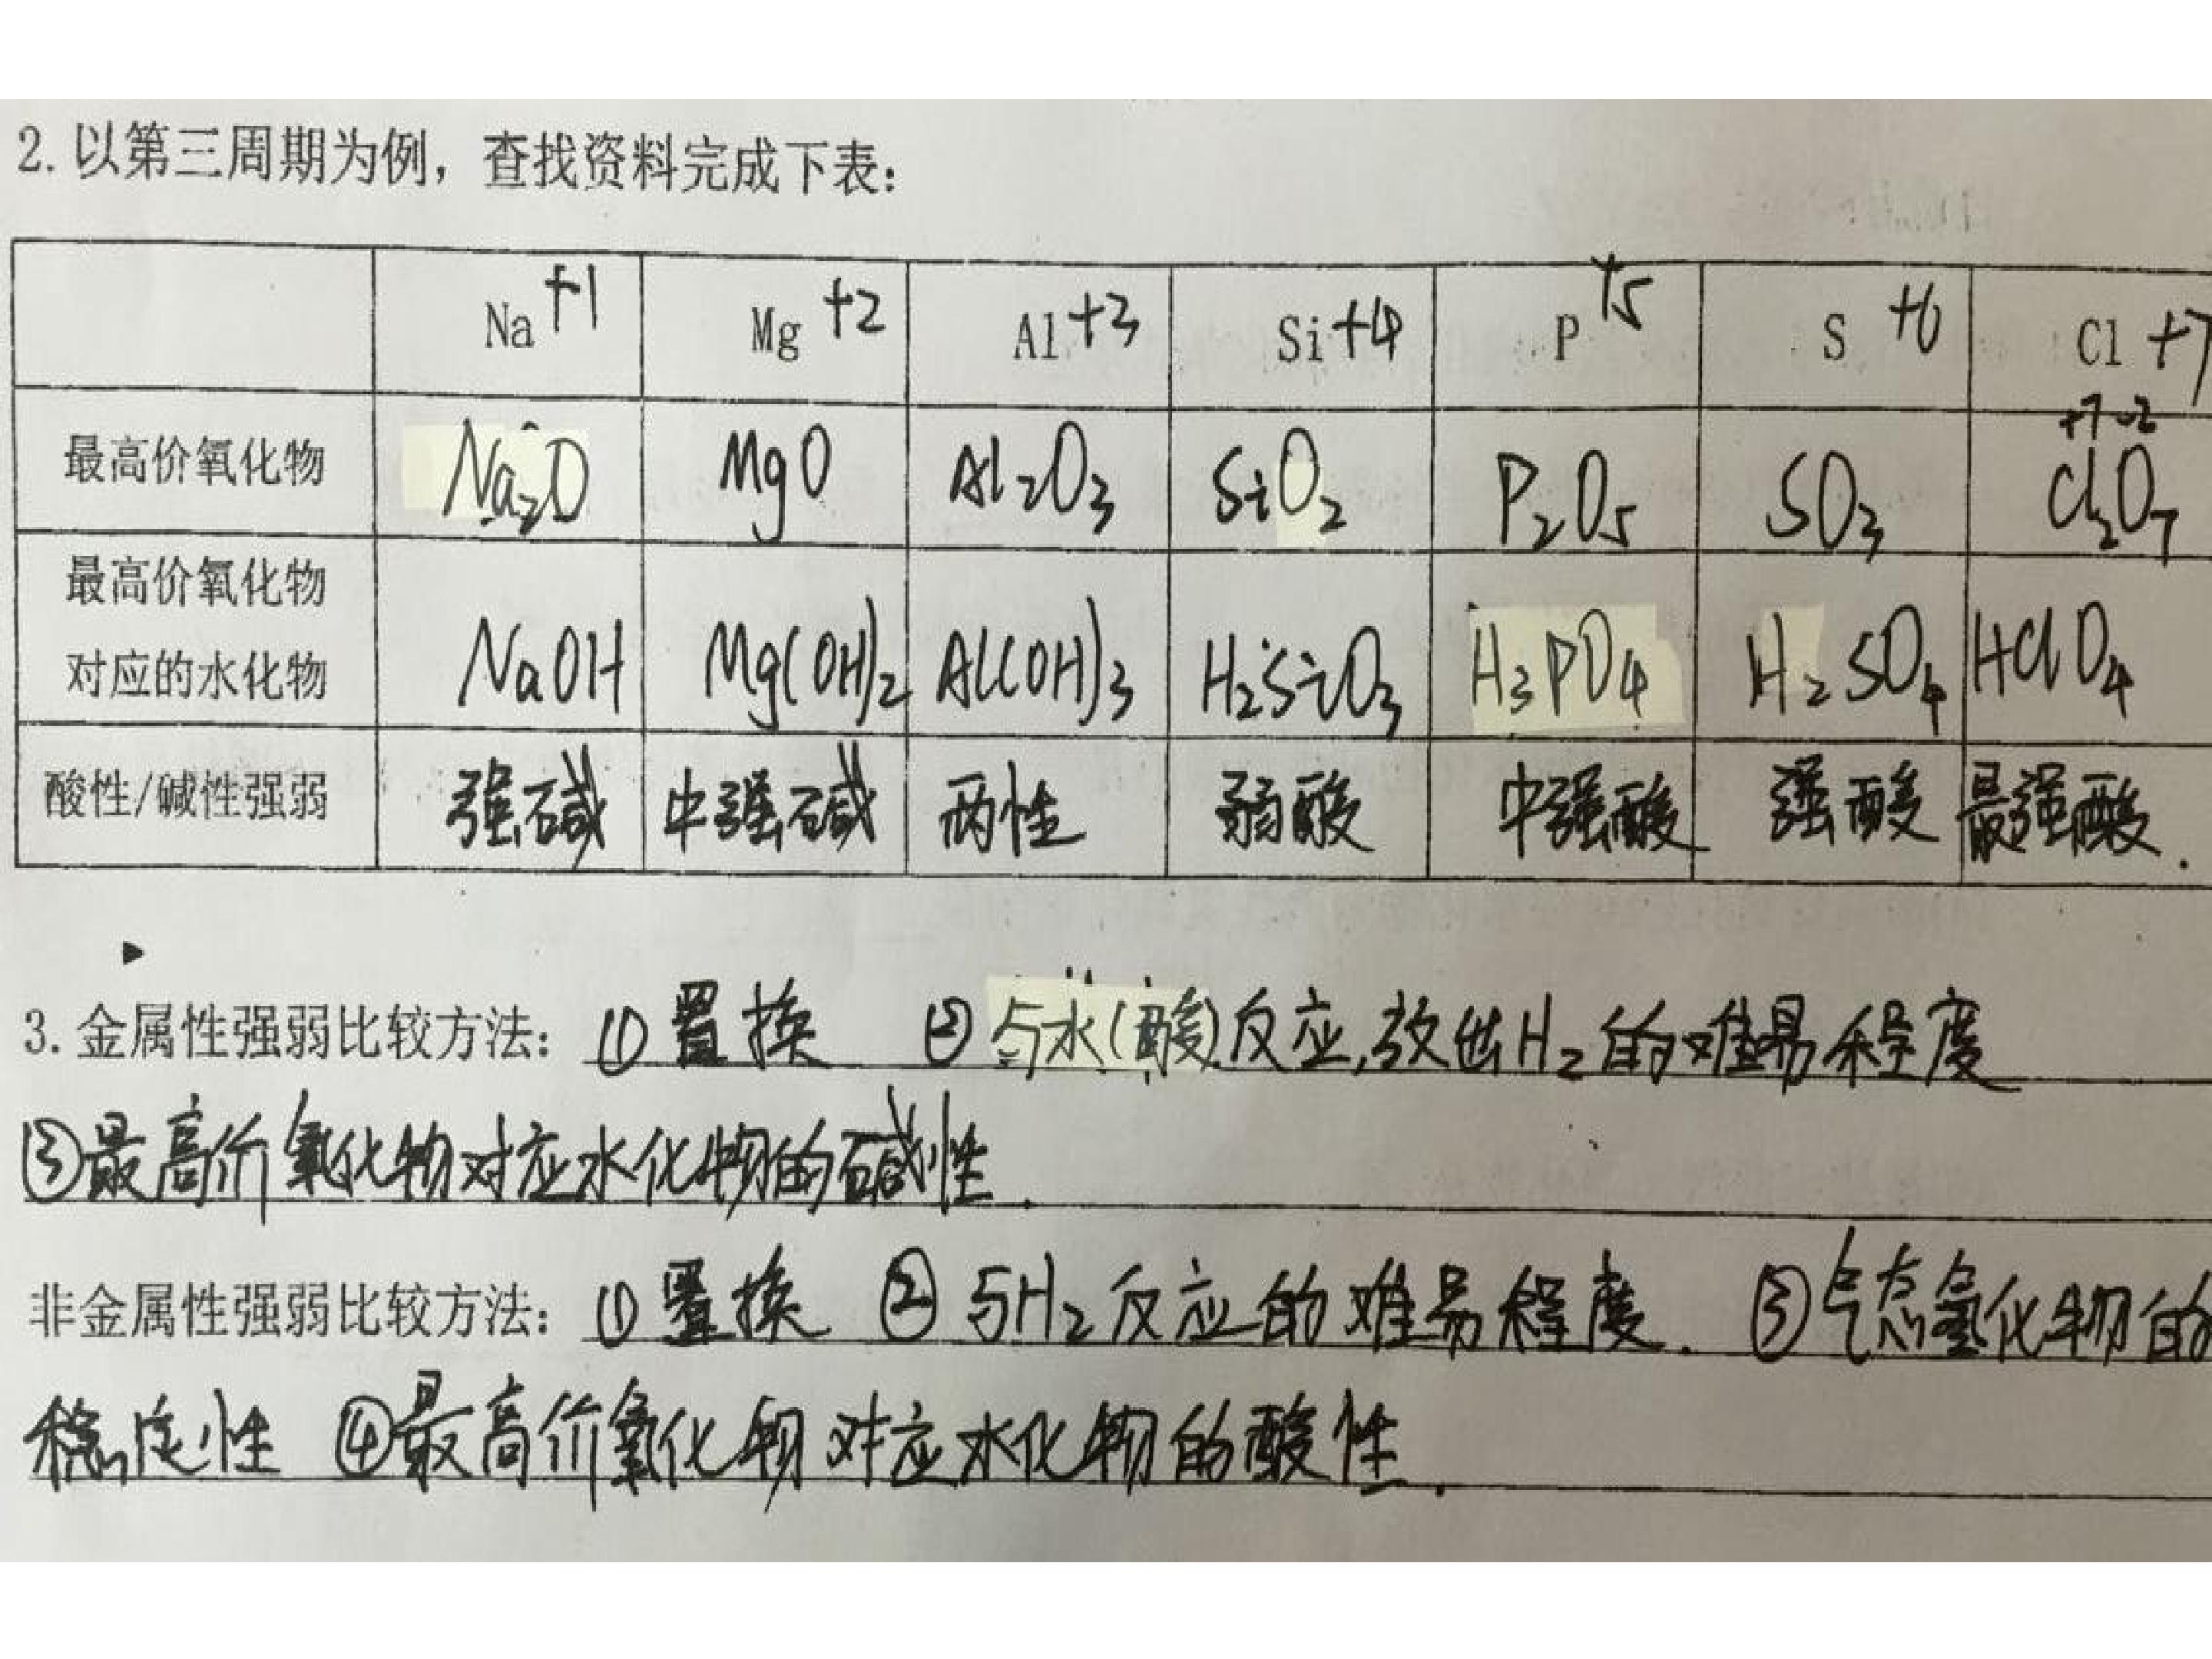 2. 以第三周期为例，查找资料完成下表：
Na +1 Mg +2 Al +3 Si +4 P +5 S +6 Cl +7
+7 -2
最高价氧化物 Na₂O MgO Al₂O₃ SiO₂ P₂O₅ SO₃ Cl₂O₇
最高价氧化物
对应的水化物 NaOH Mg(OH)₂ Al(OH)₃ H₂SiO₃ H₃PO₄ H₂SO₄ HClO₄
酸性/碱性强弱 强碱 中强碱 两性 弱酸 中强酸 强酸 最强酸.
3. 金属性强弱比较方法：① 置换 ② 与水(酸)反应,放出H₂的难易程度
③最高价氧化物对应水化物的碱性.
非金属性强弱比较方法：① 置换 ② 与H₂反应的难易程度. ③气态氢化物的
稳定性 ④最高价氧化物对应水化物的酸性.